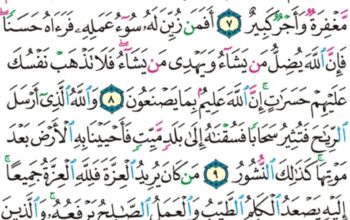 مَّغْفِرَةٌ وَأَجْرٌ كَبِيرٌ ٧ أَفَمَن زُيِّنَ لَهُۥ سُوٓءُ عَمَلِهِۦ فَرَءَاهُ حَسَنًا
فَإِنَّ ٱللَّهَ يُضِلُّ مَن يَشَآءُ وَيَهْدِى مَن يَشَآءُ فَلَا تَذْهَبْ نَفْسُكَ
عَلَيْهِمْ حَسَرَٰتٍ إِنَّ ٱللَّهَ عَلِيمٌۢ بِمَا يَصْنَعُونَ ٨ وَٱللَّهُ ٱلَّذِىٓ أَرْسَلَ
ٱلرِّيَٰحَ فَتُثِيرُ سَحَابًا فَسُقْنَٰهُ إِلَىٰ بَلَدٍ مَّيِّتٍ فَأَحْيَيْنَا بِهِ ٱلْأَرْضَ بَعْدَ
مَوْتِهَا كَذَٰلِكَ ٱلنُّشُورُ ٩ مَن كَانَ يُرِيدُ ٱلْعِزَّةَ فَلِلَّهِ ٱلْعِزَّةُ جَمِيعًا
إِلَيْهِ يَصْعَدُ ٱلْكَلِمُ ٱلطَّيِّبُ وَٱلْعَمَلُ ٱلصَّٰلِحُ يَرْفَعُهُۥ وَٱلَّذِينَ